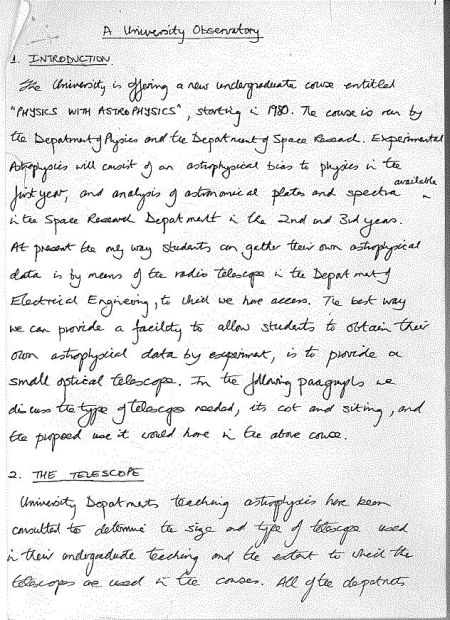 A University Observatory
1. INTRODUCTION
The University is offering a new undergraduate course entitled
"PHYSICS WITH ASTROPHYSICS", starting in 1980. The course is run by
the Department of Physics and the Department of Space Research. Experimental
Astrophysics will consist of an astrophysical bias to physics in the
first year, and analysis of astronomical plates and spectra available
in the Space Research Department in the 2nd and 3rd years.
At present the only way students can gather their own astrophysical
data is by means of the radio telescope in the Department of
Electrical Engineering, to which we have access. The best way
we can provide a facility to allow students to obtain their
own astrophysical data by experiment, is to provide a
small optical telescope. In the following paragraphs we
discuss the type of telescope needed, its cost and siting, and
the proposed use it would have in the above course.
2. THE TELESCOPE
University Departments teaching astrophysics have been
consulted to determine the size and type of telescope used
in their undergraduate teaching and the extent to which the
telescopes are used in the courses. All of the departments